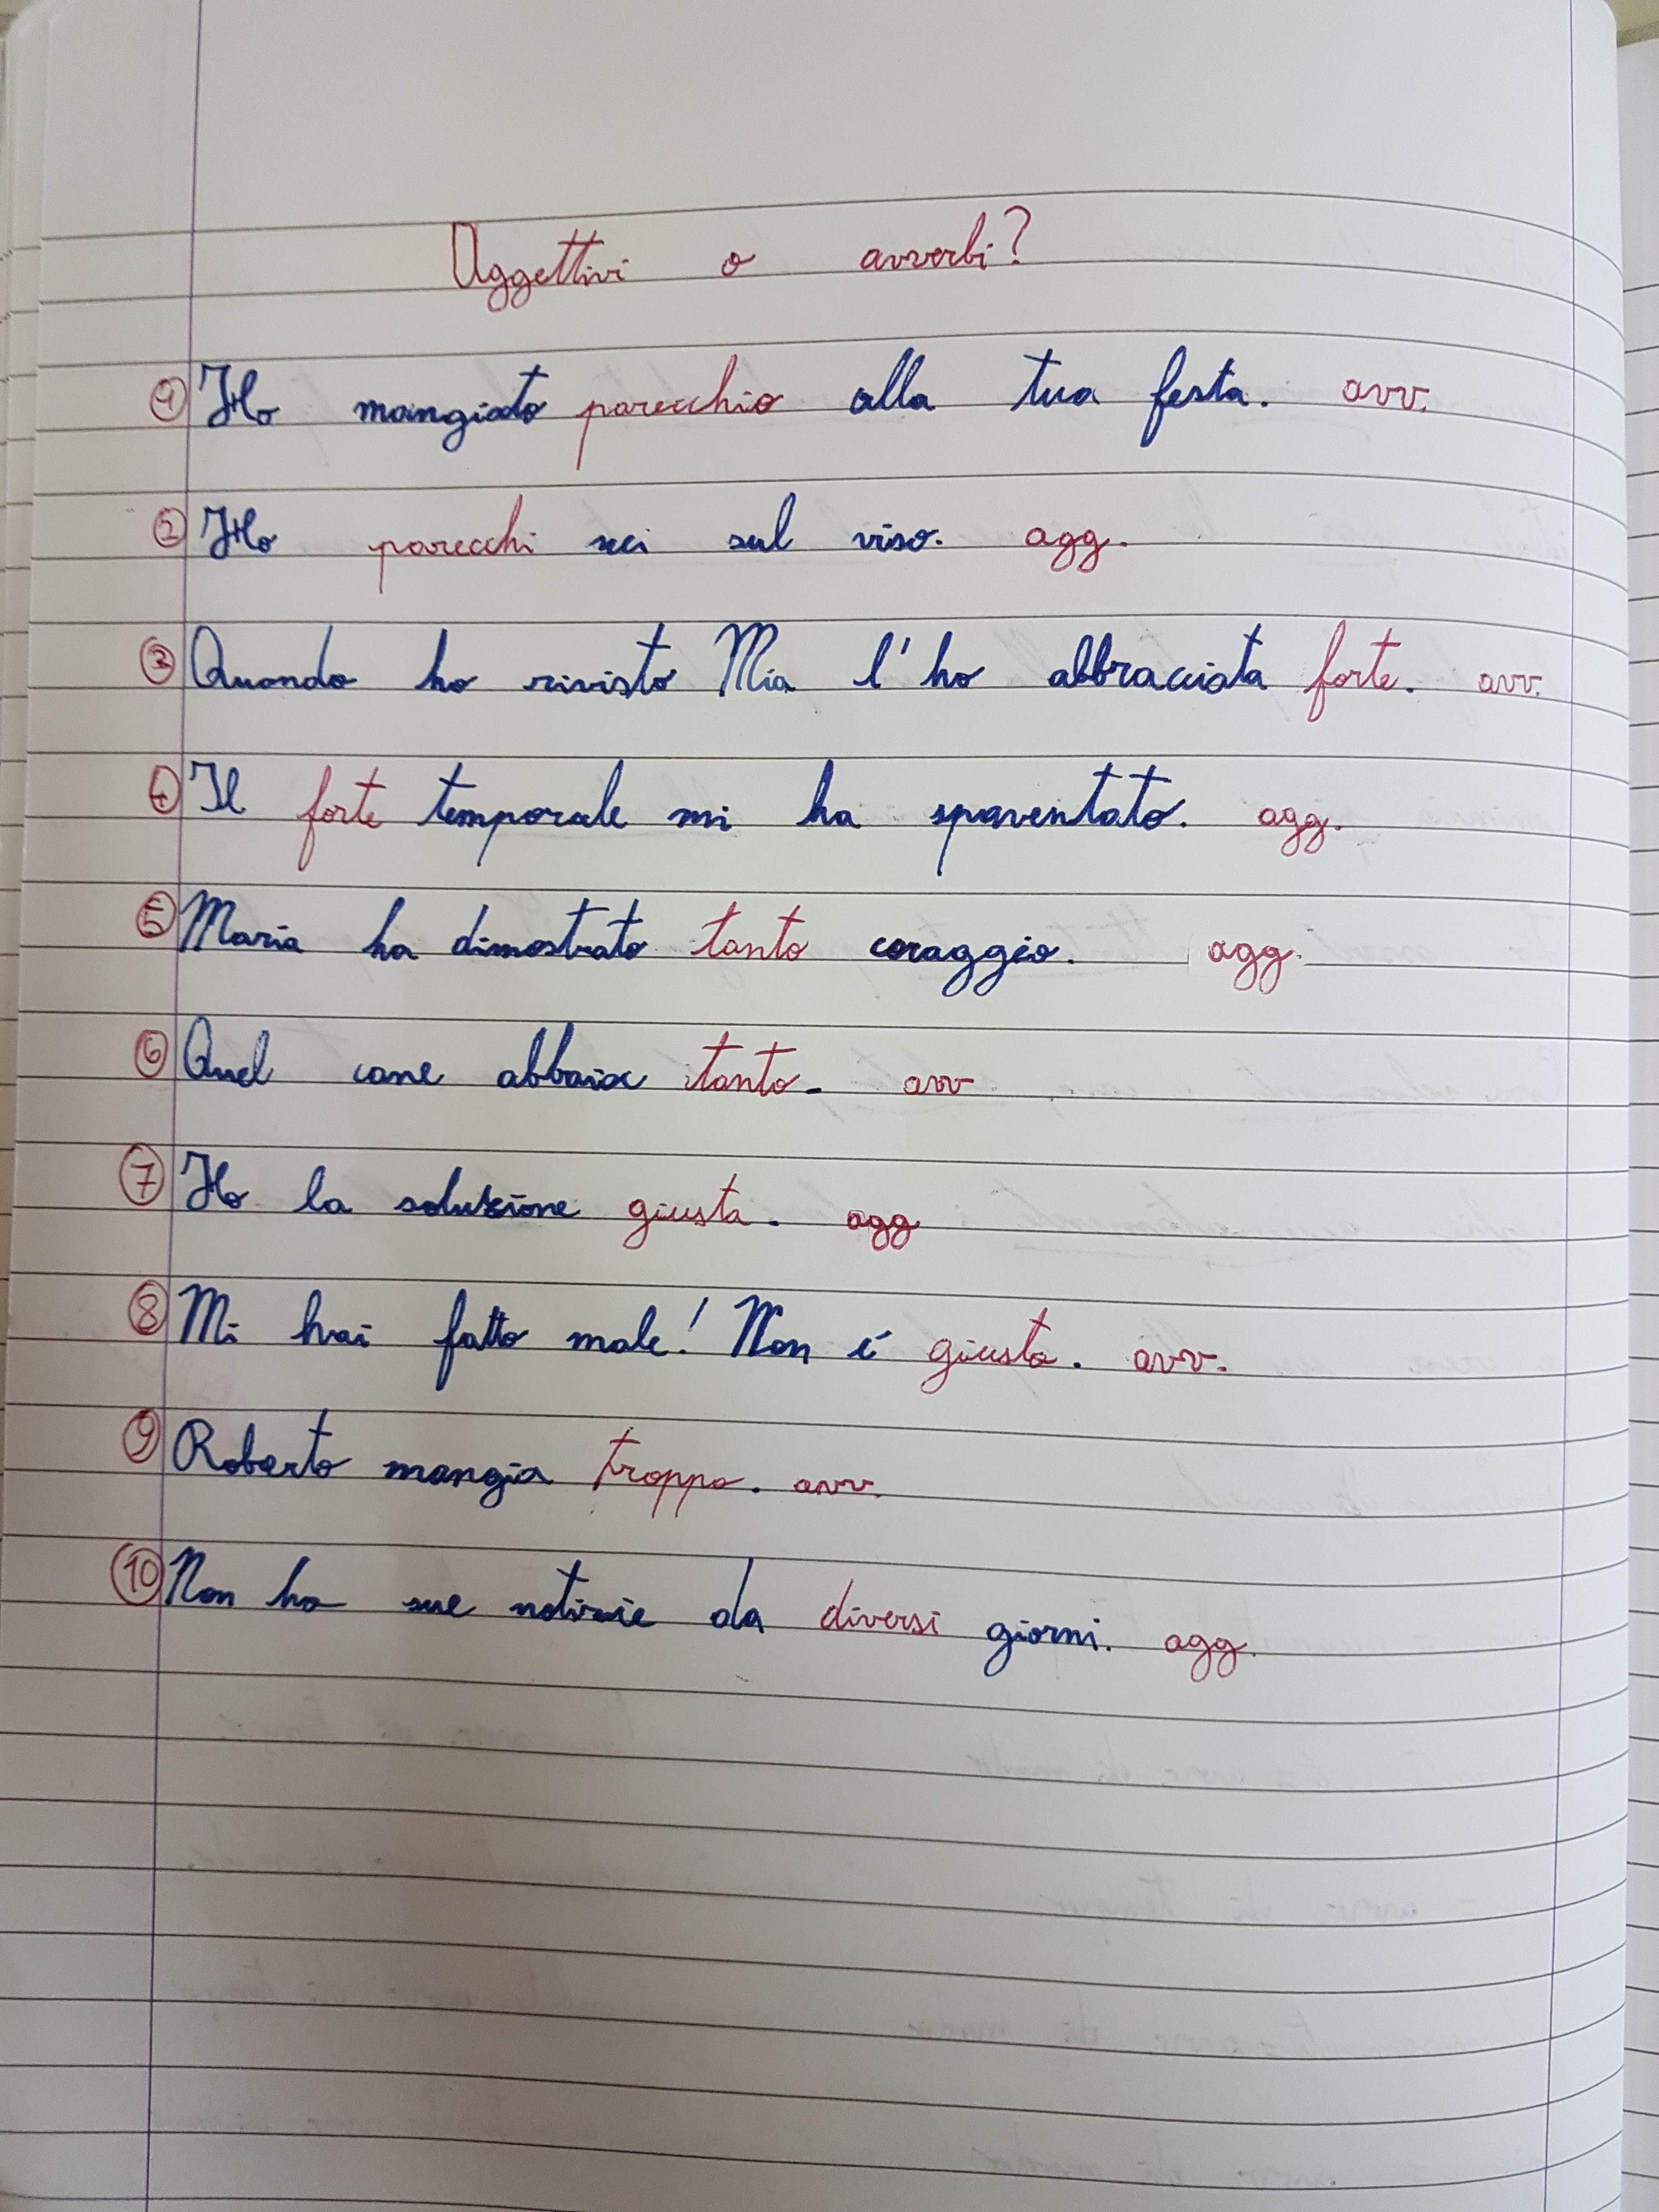 Aggettivi o avverbi?
① Ho mangiato parecchio alla tua festa. avv.
② Ho parecchi nei sul viso. agg.
③ Quando ho rivisto Mia l'ho abbracciata forte. avv.
④ Il forte temporale mi ha spaventato. agg.
⑤ Maria ha dimostrato tanto coraggio. agg.
⑥ Quel cane abbaia tanto. avv
⑦ Ho la soluzione giusta. agg
⑧ Mi hai fatto male! Non é giusto. avv.
⑨ Roberto mangia troppo. avv.
⑩ Non ho sue notizie da diversi giorni. agg.